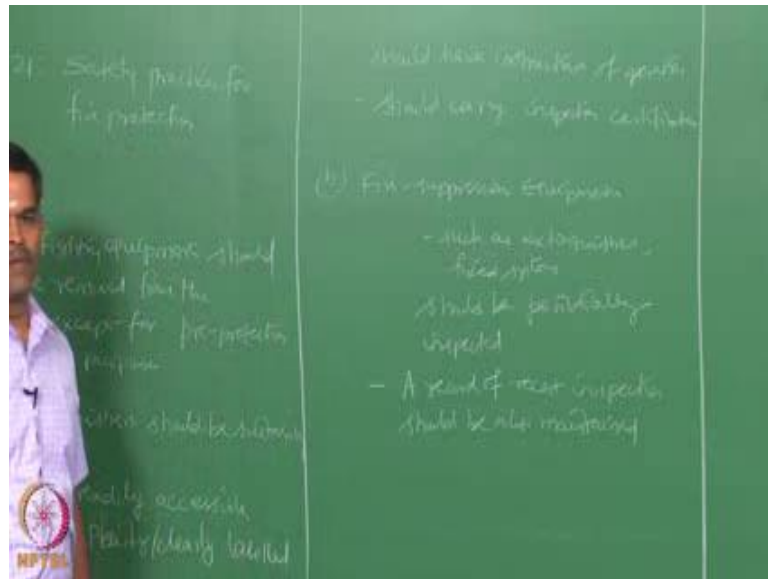 21. Safety practice for
fire protection
equipment should
removed from the
except for fire-protection
purpose
should be
readily accessible
Plainly/clearly labelled
should have instruction of operation
- should carry inspection certificates
(b) Fire-suppression Equipment
- such as extinguishers,
fixed system
should be periodically
inspected
- A record of recent inspection
should be also maintained
NPTEL